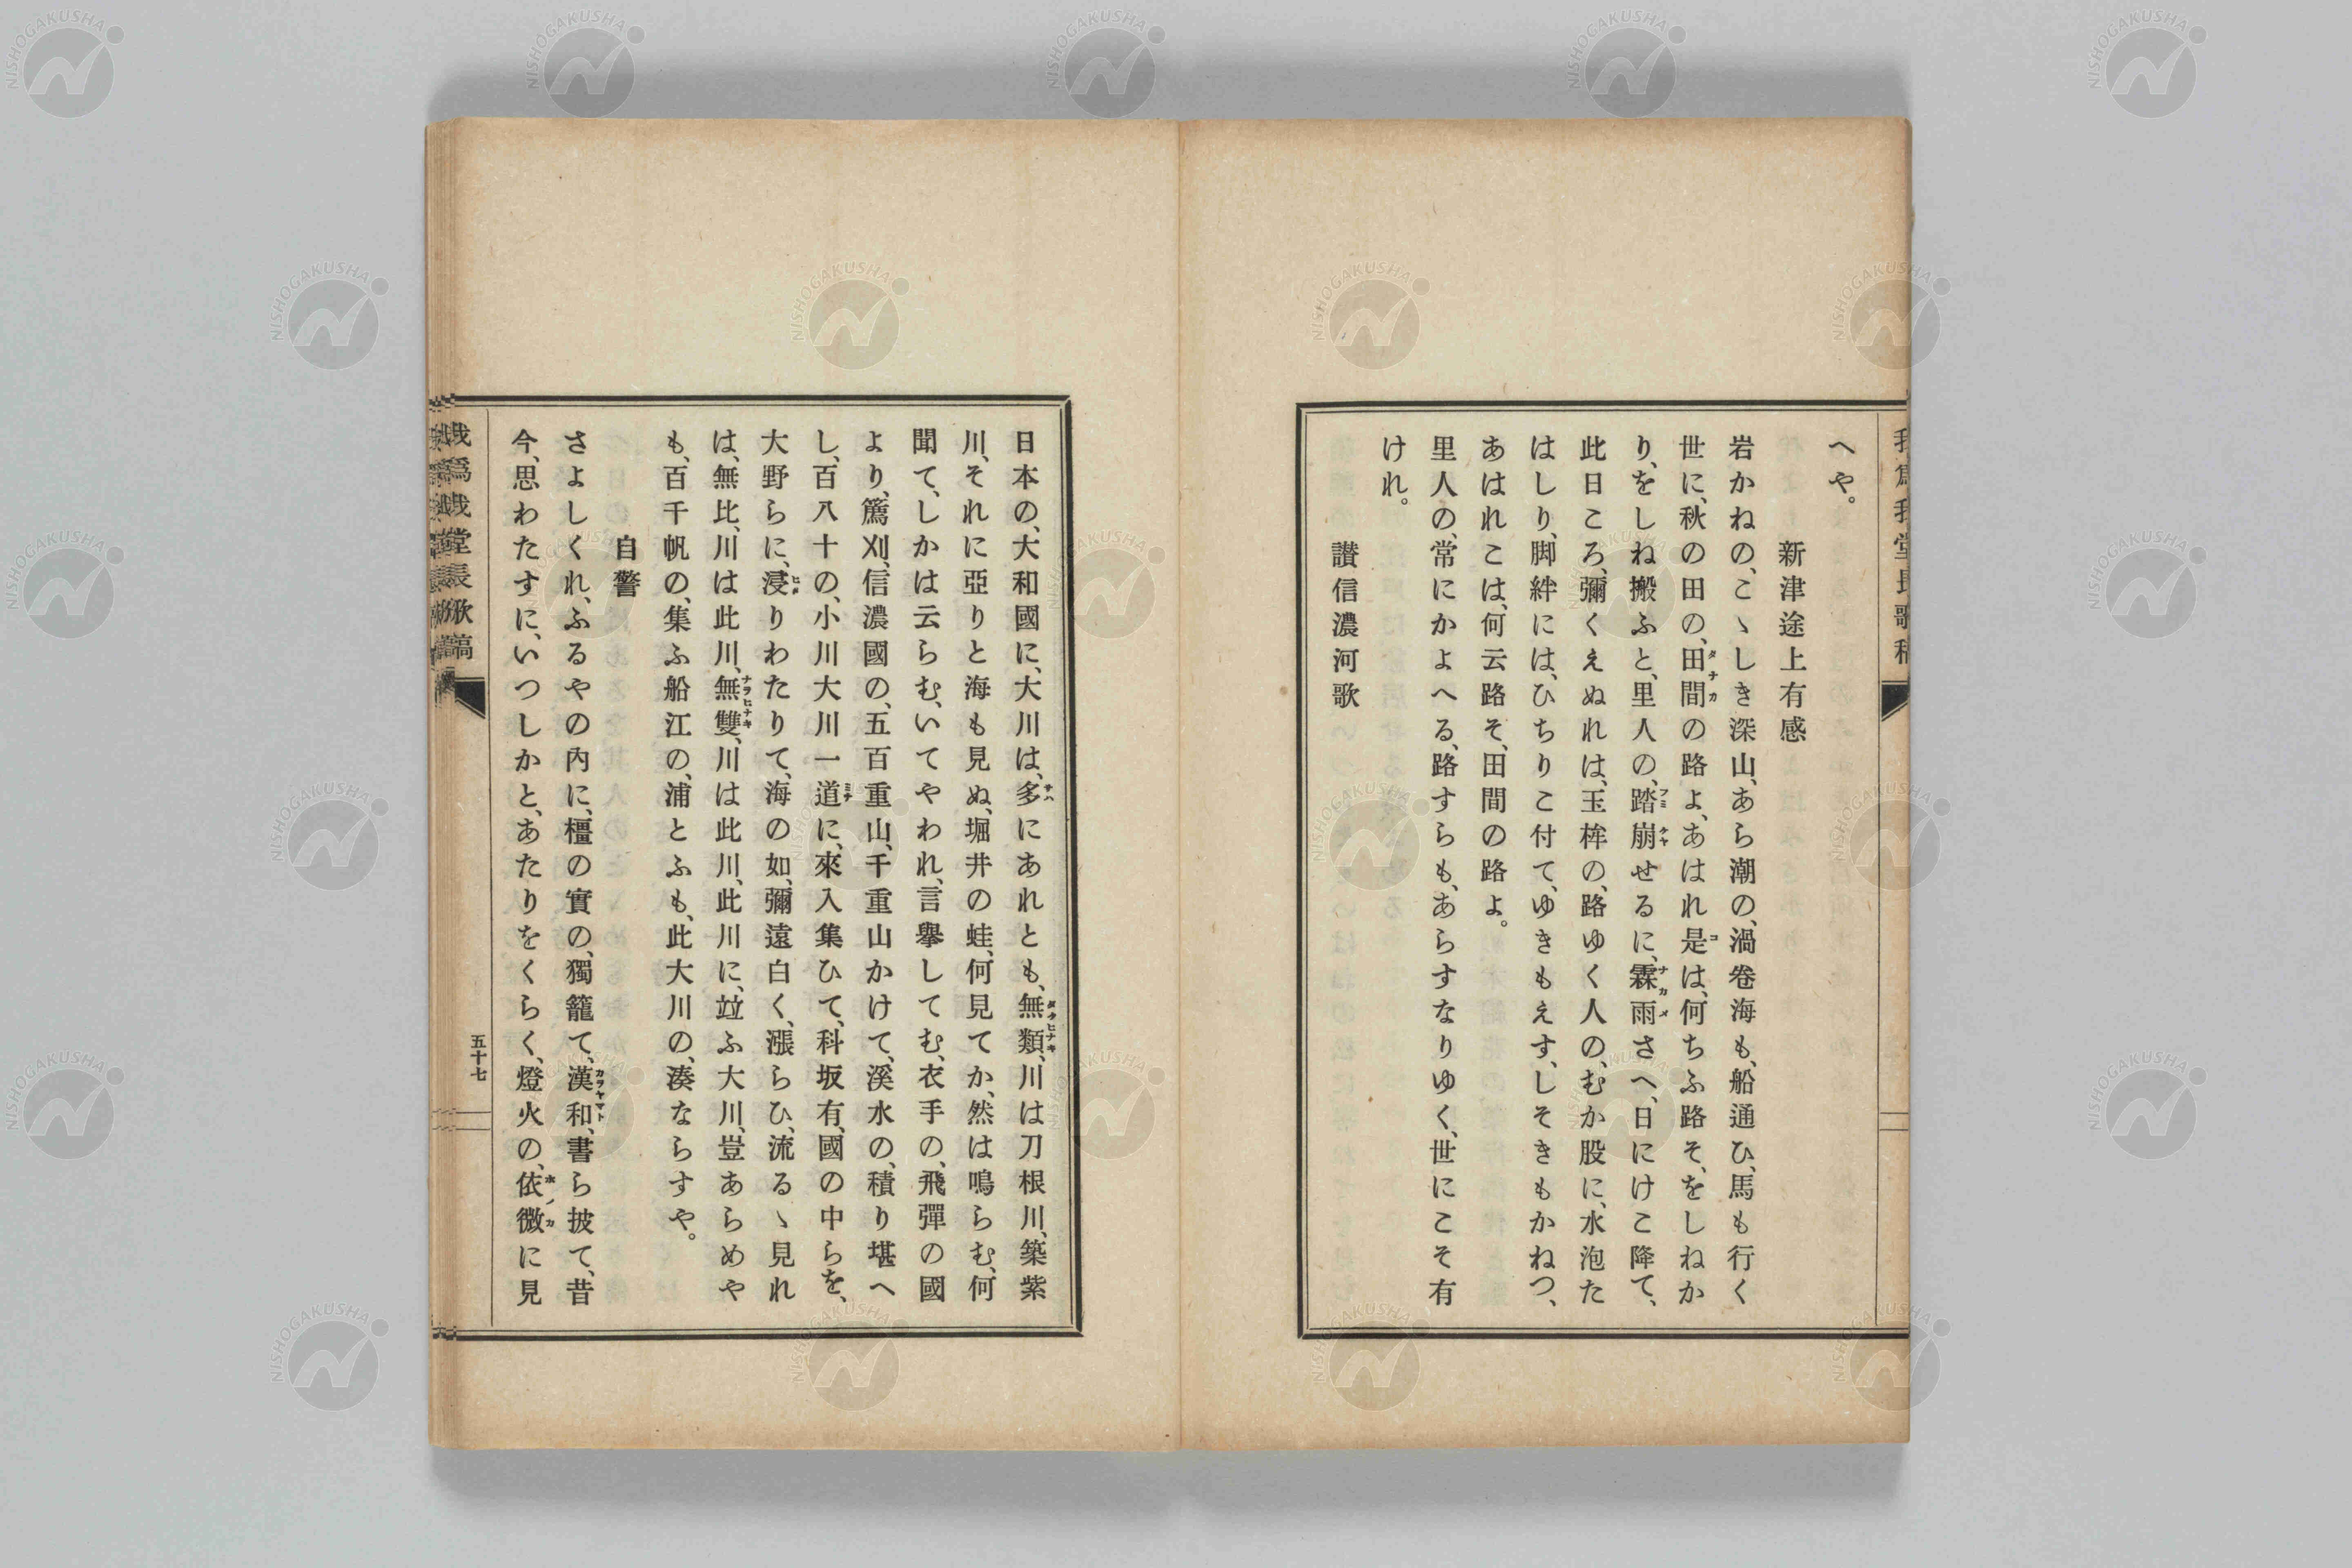 へや。
新津途上有感
岩かねの、こゝしき深山、あら潮の、渦卷海も、船通ひ、馬も行く
世に、秋の田の、田間の路よ、あはれ是は、何ちふ路そ、をしねか
り、をしね搬ふと、里人の、踏崩せるに、霖雨さへ、日にけこ降て、
此日ころ、彌くえぬれは、玉桙の、路ゆく人の、むか股に、水泡た
はしり、脚絆には、ひちりこ付て、ゆきもえす、しそきもかねつ、
あはれこは、何云路そ、田間の路よ。
里人の、常にかよへる、路すらも、あらすなりゆく、世にこそ有
けれ。
讃信濃河歌
日本の、大和國に、大川は、多にあれとも、無類、川は刀根川、築紫
川、それに亞りと海も見ぬ、堀井の蛙、何見てか、然は鳴らむ、何
聞て、しかは云らむ、いてやわれ、言擧してむ、衣手の、飛彈の國
より、篶刈、信濃國の、五百重山、千重山かけて、溪水の、積り堪へ
し、百八十の、小川大川一道に、來入集ひて、科坂有、國の中らを、
大野らに、浸りわたりて、海の如、彌遠白く、漲らひ、流るゝ見れ
は、無比、川は此川、無雙、川は此川、此川に、竝ふ大川、豈あらめや
も、百千帆の、集ふ船江の、浦とふも、此大川の、湊ならすや。
自警
さよしくれ、ふるやの內に、橿の實の、獨籠て、漢和、書ら披て、昔
今、思わたすに、いつしかと、あたりをくらく、燈火の、依微に見
我爲我堂長歌稿
五十七